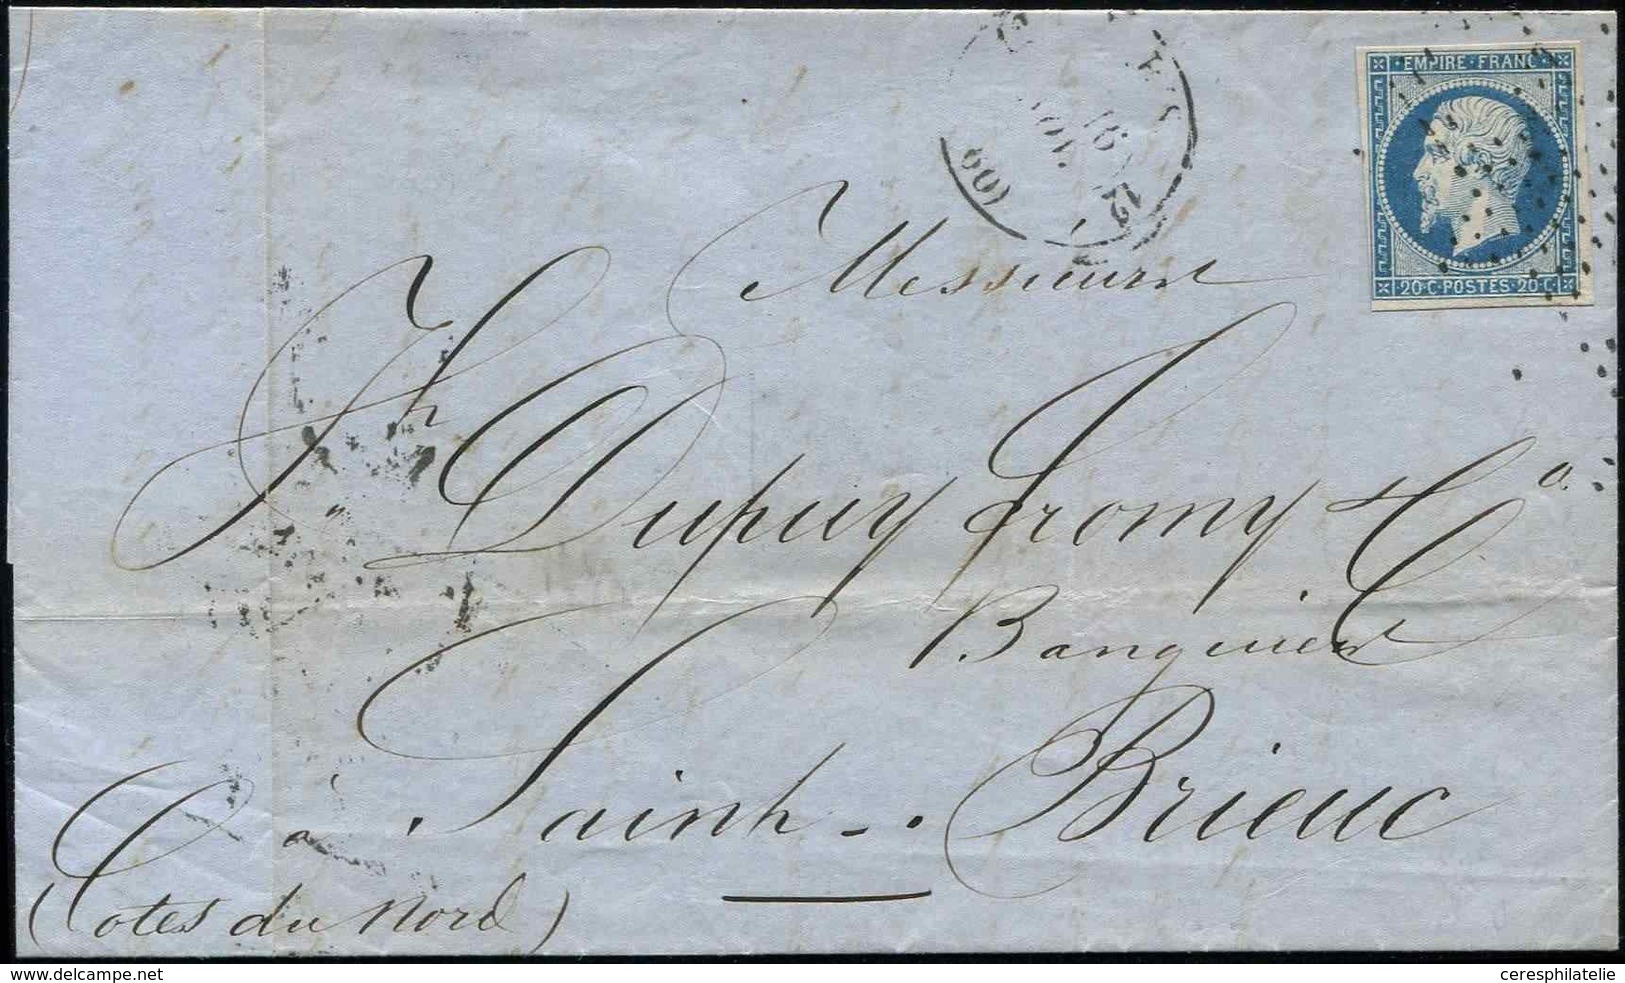 EMPIRE·FRANC
20·C·POSTES·20·C·
(60)
Messieurs
Jh. Dupuy fromy & Cie
Banquiers
à Saint-Brieuc
(Cotes du Nord)
www.delcampe.net
ceresphilatelie